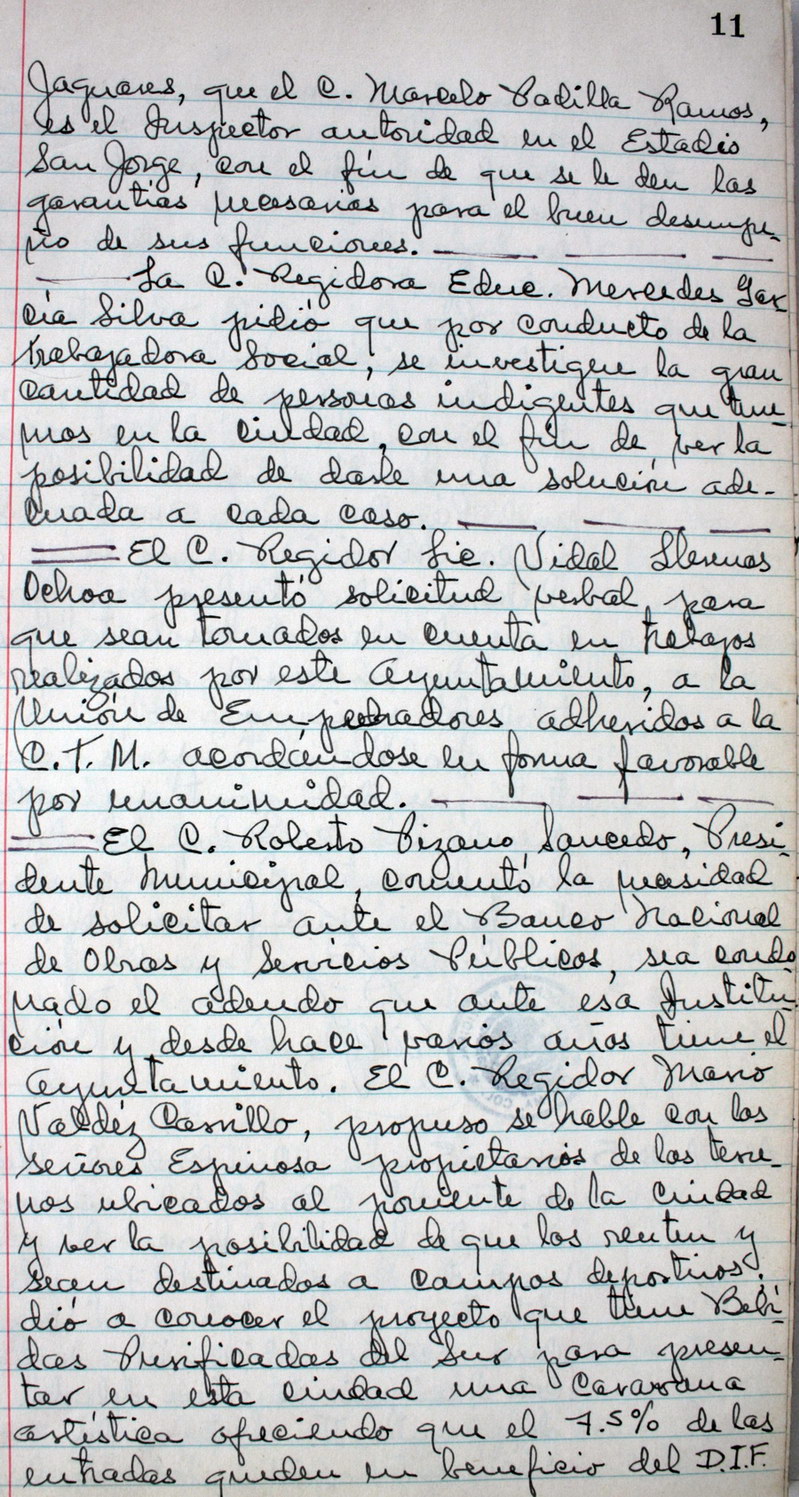 11
Jaguares, que el C. Marcelo Padilla Ramos,
es el Inspector autoridad en el Estadio
San Jorge, con el fin de que se le den las
garantías necesarias para el buen desempe-
ño de sus funciones.
La C. Regidora Educ. Mercedes Gar
cía Silva pidió que por conducto de la
trabajadora Social, se investigue la gran
cantidad de personas indigentes que tene-
mos en la ciudad, con el fin de ver la
posibilidad de darle una solución ade-
cuada a cada caso.
El C. Regidor Lic. Vidal Llerenas
Ochoa presentó solicitud verbal para
que sean tomados en cuenta en trabajos
realizados por este Ayuntamiento, a la
Unión de Empedradores adheridos a la
C.T.M. acordándose en forma favorable
por unanimidad.
El C. Roberto Pizano Saucedo, Presi-
dente Municipal, comentó la necesidad
de solicitar ante el Banco Nacional
de Obras y Servicios Públicos, sea condo
nado el adeudo que ante esa Institu-
ción y desde hace varios años tiene el
Ayuntamiento. El C. Regidor Mario
Valdéz Carrillo, propuso se hable con los
señores Espinosa propietarios de los terre-
nos ubicados al poniente de la ciudad
y ver la posibilidad de que los renten y
sean destinados a campos deportivos,
dió a conocer el proyecto que tiene Bebi-
das Purificadas del Sur para presen-
tar en esta ciudad una Caravana
artística ofreciendo que el 7.5% de las
entradas queden en beneficio del D.I.F.